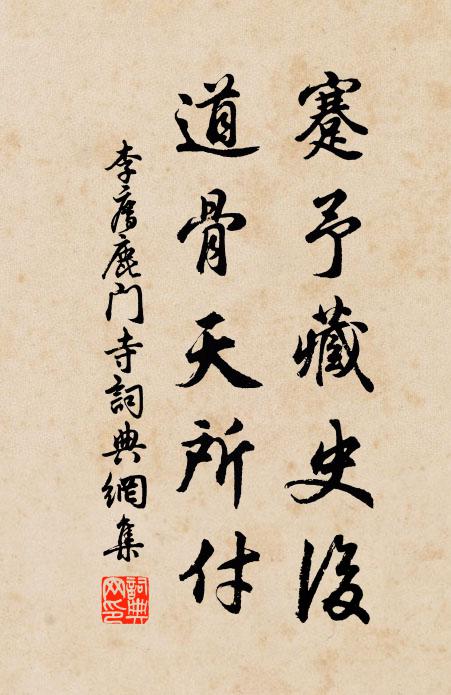 蹇予藏史後
道骨天所付
李廌鹿门寺詞典網集
詞典網印